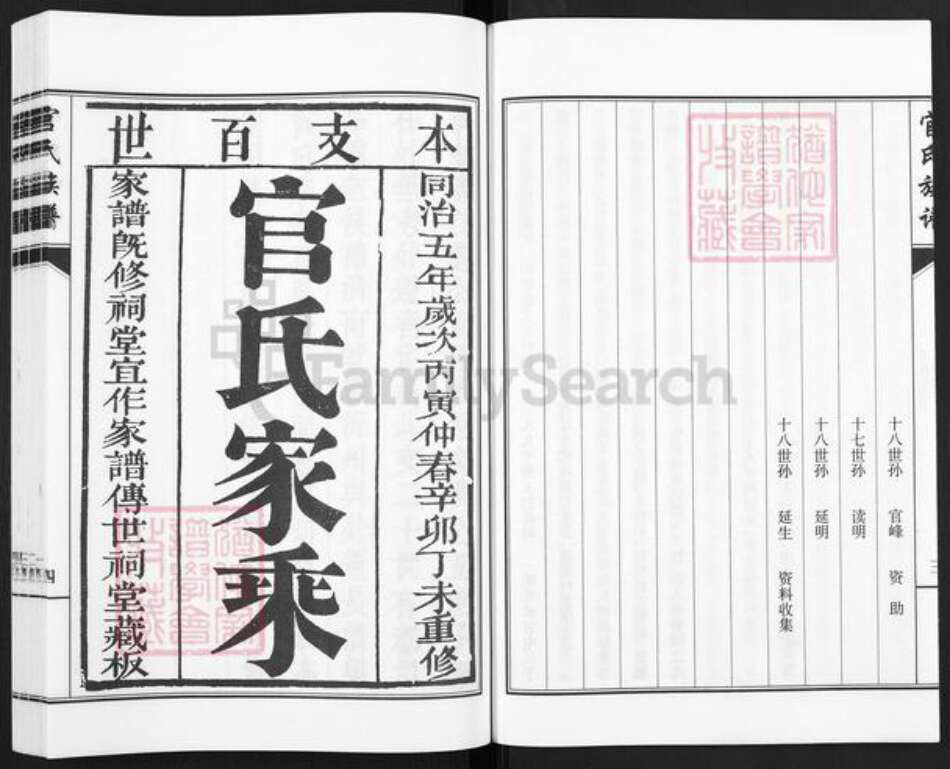 官氏族譜
三
十八世孙 官峰 资助
十七世孙 读明
十八世孙 延明
十八世孙 延生 资料收集
本支百世
同治五年歲次丙寅仲春辛卯丁未重修
官氏家乘
家譜既修祠堂宜作家譜傳世祠堂藏板
官氏族譜
四
FamilySearch